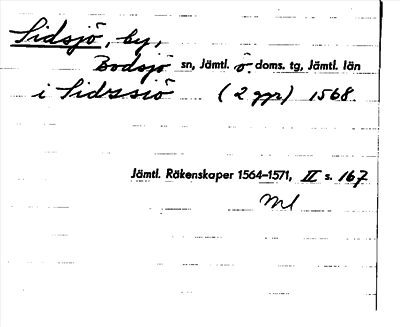 Sidsjö, by,
Bodsjö sn, Jämtl. ö. doms. tg, Jämtl. län
i Sidssiö (2 ggr) 1568
Jämtl. Räkenskaper 1564–1571, II s. 167
Ml